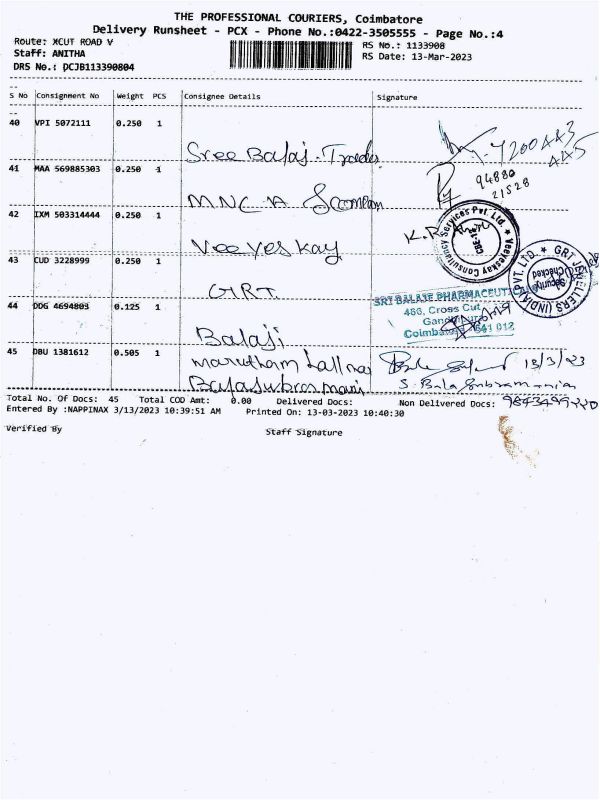 THE PROFESSIONAL COURIERS, Coimbatore
Delivery Runsheet - PCX - Phone No.:0422-3505555 - Page No.:4
Route: XCUT ROAD V
Staff: ANITHA
DRS No.: DCJB113390804
RS No.: 1133908
RS Date: 13-Mar-2023
S No Consignment No Weight PCS Consignee Details Signature
40 VPI 5072111 0.250 1
Sree Balaji Traders
41 MAA 569885303 0.250 1
94880
21528
MNC A
42 IXM 503314444 0.250 1
K.R
Veeyeskay Consultancy Services Pvt. Ltd.
CBE-12
Veeyes Kay
43 CUD 3228999 0.250 1
GRT JEWELLERS (INDIA) PVT. LTD.
Security
Checked
GRT
44 DDG 4694803 0.125 1
SRI BALAJI PHARMACEUTICALS
486, Cross Cut
641 012
Balaji
45 DBU 1381612 0.505 1
marutham
13/3/23
Balasubramani
S. Balasubramanian
Total No. Of Docs: 45 Total COD Amt: 0.00 Delivered Docs: Non Delivered Docs:
Entered By :NAPPINAX 3/13/2023 10:39:51 AM Printed On: 13-03-2023 10:40:30
Verified By Staff Signature